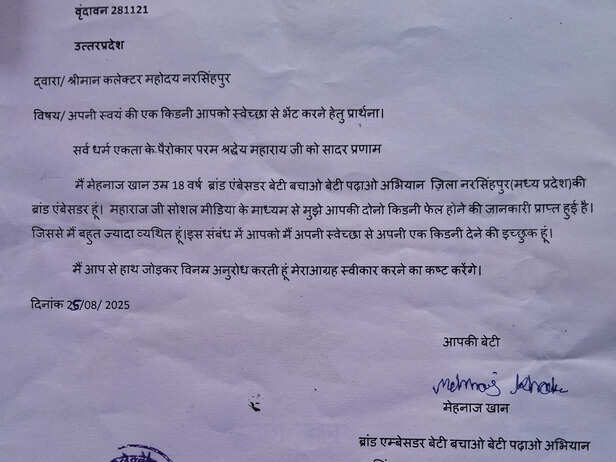 वृंदावन 281121
उत्तरप्रदेश
द्वारा/ श्रीमान कलेक्टर महोदय नरसिंहपुर
विषय/ अपनी स्वयं की एक किडनी आपको स्वेच्छा से भेंट करने हेतु प्रार्थना।
सर्व धर्म एकता के पैरोकार परम श्रद्धेय महाराय जी को सादर प्रणाम
मैं मेहनाज खान उम्र 18 वर्ष ब्रांड एंबेसडर बेटी बचाओ बेटी पढ़ाओ अभियान ज़िला नरसिंहपुर(मध्य प्रदेश)की
ब्रांड एंबेसडर हूं। महाराज जी सोशल मीडिया के माध्यम से मुझे आपकी दोनो किडनी फेल होने की जानकारी प्राप्त हुई है।
जिससे मैं बहुत ज्यादा व्यथित हूं।इस संबंध में आपको मैं अपनी स्वेच्छा से अपनी एक किडनी देने की इच्छुक हूं।
मैं आप से हाथ जोड़कर विनम्र अनुरोध करती हूं मेराआग्रह स्वीकार करने का कष्ट करेंगे।
दिनांक 25/08/ 2025
आपकी बेटी
Mehnaj Khan
मेहनाज खान
ब्रांड एम्बेसडर बेटी बचाओ बेटी पढ़ाओ अभियान